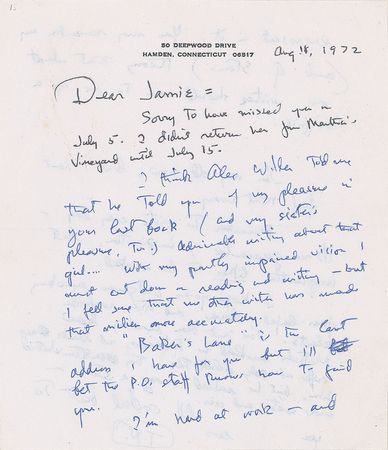 50 DEEPWOOD DRIVE
HAMDEN, CONNECTICUT 06517
Aug 18, 1972
Dear Jamie =
Sorry to have missed you on
July 5. I didn't return here from Martha's
Vineyard until July 15.
I think Alec Wilder told me
that he told you of my pleasure in
your last book (and my sister's
pleasure, too) admirable writing about that
girl.... With my partly impaired vision I
must cut down on reading and writing – but
I feel sure that no other writer has made
that milieu more accurately.
"Baker's Lane" is the last
address I have for you but I'll
bet the P.O. staff knows how to find
you.
I'm hard at work – and